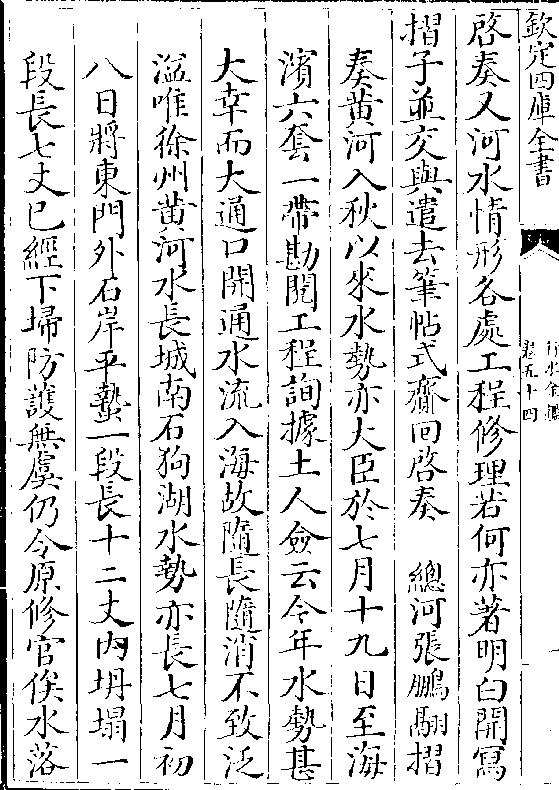 欽定四庫全書
行水金鑑
卷五十四
啓奏又河水情形各處工程修理若何亦著明白開寫
摺子並交與遣去筆帖式齎回啓奏　總河張鵬翮摺
奏黄河入秋以來水勢亦大臣於七月十九日至海
濱六套一帶勘閲工程詢據土人僉云今年水勢甚
大幸而大通口開通水流入海故隨長隨消不致泛
溢唯徐州黄河水長城南石狗湖水勢亦長七月初
八日將東門外石岸平蟄一段長十二丈内坍塌一
段長七丈已經下埽防護無虞仍令原修官俟水落